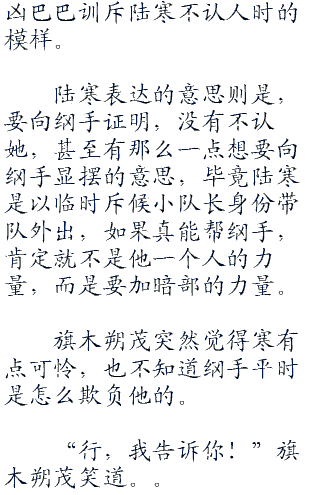 凶巴巴训斥陆寒不认人时的
模样。
陆寒表达的意思则是，
要向纲手证明，没有不认
她，甚至有那么一点想要向
纲手显摆的意思，毕竟陆寒
是以临时斥候小队长身份带
队外出，如果真能帮纲手，
肯定就不是他一个人的力
量，而是要加暗部的力量。
旗木朔茂突然觉得寒有
点可怜，也不知道纲手平时
是怎么欺负他的。
“行，我告诉你！”旗
木朔茂笑道。。